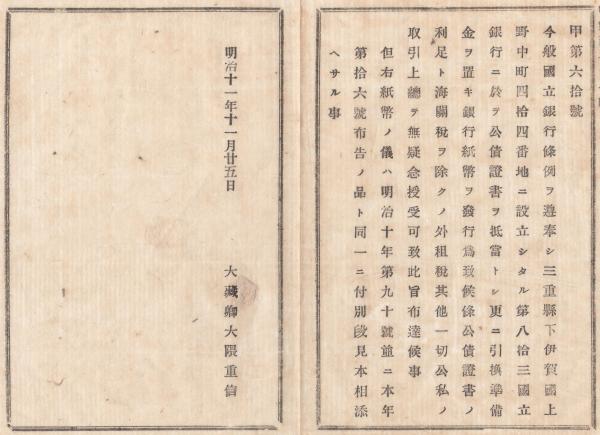 甲第六拾號
今般國立銀行條例ヲ遵奉シ三重縣下伊賀國上
野中町四拾四番地ニ設立シタル第八拾三國立
銀行ニ於ヲ公債證書ヲ抵當トシ更ニ引換準備
金ヲ置キ銀行紙幣ヲ發行爲致候條公債證書ノ
利足ト海關稅ヲ除クノ外租稅其他一切公私ノ
取引上總テ無疑念授受可致此旨布達候事
但右紙幣ノ儀ハ明治十年第九十號並ニ本年
第拾六號布告ノ品ト同一ニ付別段見本相添
ヘサル事
明治十一年十一月廿五日
大藏卿大隈重信